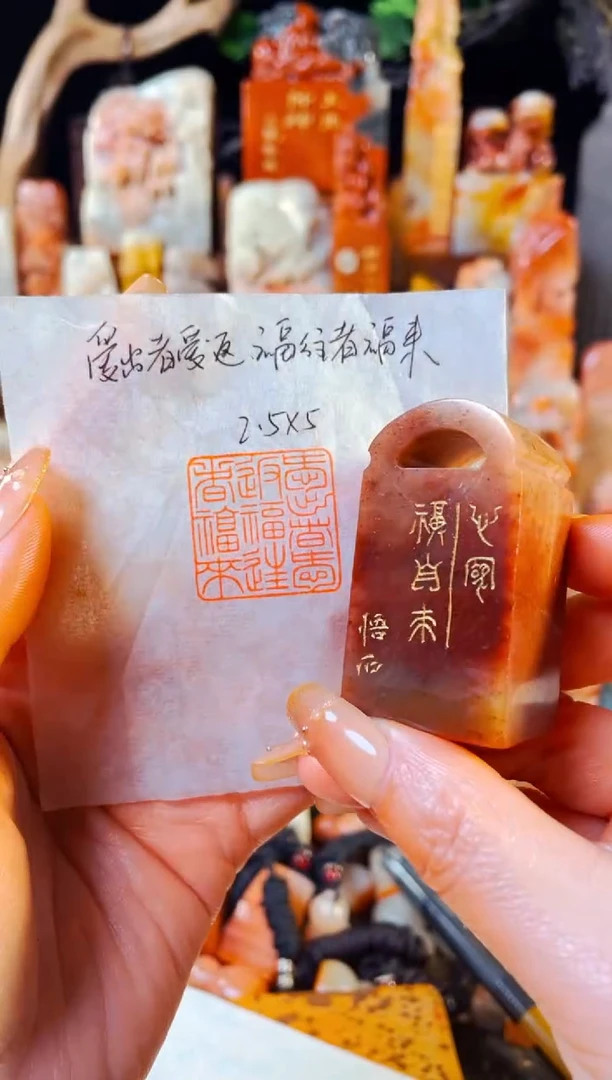 愛出者愛返 福往者福来
2.5X5
愛出者愛
返福往
者福來
心寬
福自来
悟石